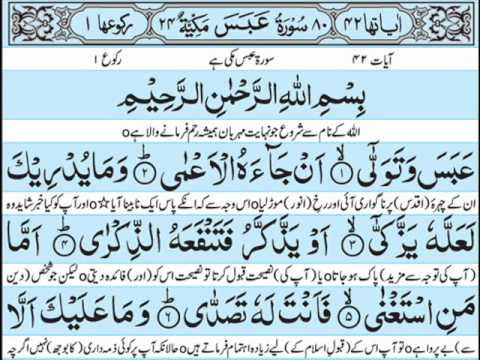 اٰیاتها ۴۲ ۸۰ سُوْرَةُ عَبَسَ مَکِّیَّةٌ ۲۴ رکوعها ۱
آیات ۴۲ سورۃ عبس مکی ہے رکوع ۱
بِسْمِ اللّٰهِ الرَّحْمٰنِ الرَّحِیْمِ
اللہ کے نام سے شروع جو نہایت مہربان ہمیشہ رحم فرمانے والا ہے o
عَبَسَ وَتَوَلّٰۤی ۙ﴿۱﴾ اَنْ جَآءَهُ الْاَعْمٰی ؕ﴿۲﴾ وَمَا یُدْرِیْكَ
ان کے چہرۂ (اقدس) پر ناگواری آئی اور رخِ (انور) موڑ لیا o اس وجہ سے کہ انکے پاس ایک نابینا آیا o☆ اور آپ کو کیا خبر شاید وہ
لَعَلَّهٗ یَزَّكّٰۤی ۙ﴿۳﴾ اَوْ یَذَّكَّرُ فَتَنْفَعَهُ الذِّكْرٰی ؕ﴿۴﴾ اَمَّا
(آپ کی توجہ سے مزید) پاک ہو جاتا o یا (آپ کی) نصیحت قبول کرتا تو نصیحت اس کو (اور) فائدہ دیتی o لیکن جو شخص (دین
مَنِ اسْتَغْنٰی ۙ﴿۵﴾ فَاَنْتَ لَهٗ تَصَدّٰی ؕ﴿۶﴾ وَمَا عَلَیْكَ اَلَّا
سے) بے پروا ہے o تو آپ اس کے (قبولِ اسلام کے) لیے زیادہ اہتمام فرماتے ہیں o حالانکہ آپ پر کوئی ذمہ داری (کا بوجھ) نہیں اگرچہ